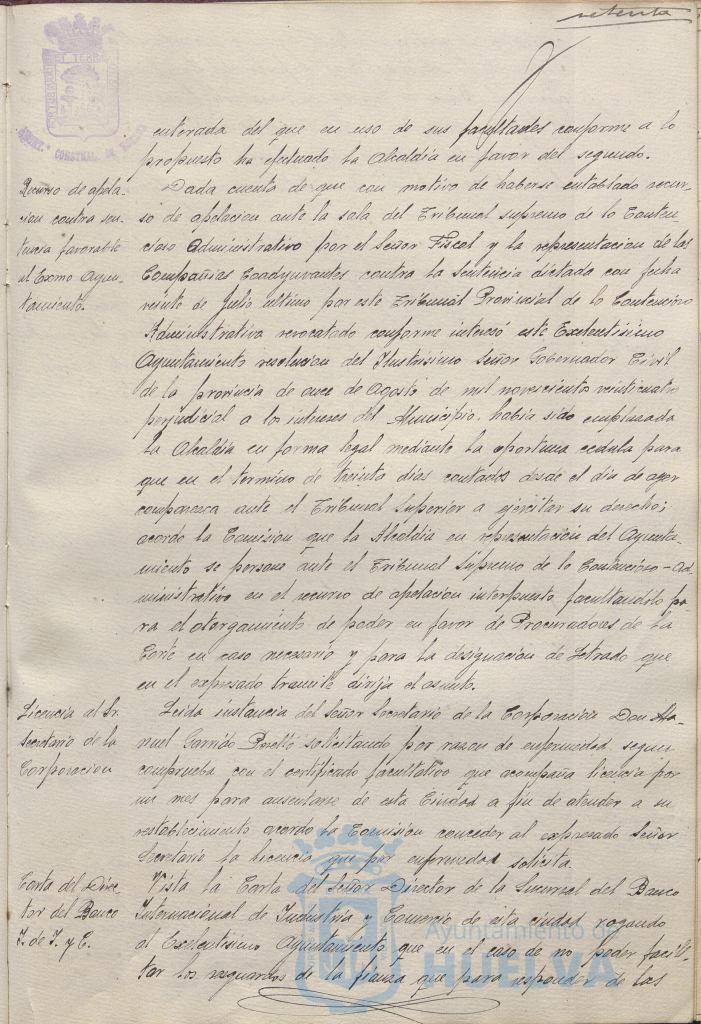 setenta
enterada del que en uso de sus facultades conforme a lo
propuesto ha efectuado la Alcaldia en favor del segundo.
Recurso de apela-
cion contra sen-
tencia favorable
al Excmo Ayun-
tamiento.
Dada cuenta de que con motivo de haberse entablado recur-
so de apelacion ante la sala del Tribunal Supremo de lo Conten-
cioso Administrativo por el Señor Fiscal y la representacion de las
Compañias Coadyuvantes contra la sentencia dictada con fecha
veinte de Julio ultimo por este Tribunal Provincial de lo Contencioso
Administrativa revocatado conforme interesó este Excelentisimo
Ayuntamiento resolucion del Ilustrisimo Señor Gobernador Civil
de la provincia de once de Agosto de mil novescientos veinticuatro
perjudicial a los intereses del Municipio, habia sido emplazada
la Alcaldia en forma legal mediante la oportuna cedula para
que en el termino de treinta dias contados desde el dia de ayer
comparezca ante el Tribunal Superior a ejercitar su derecho;
acordo la Comision que la Alcaldia en representacion del Ayunta-
miento se persone ante el Tribunal Supremo de lo Contencioso-Ad-
ministrativo en el recurso de apelacion interpuesto facultandolo pa-
ra el otorgamiento de poder en favor de Procuradores de la
Corte en caso necesario y para la designacion de Letrado que
en el expresado tramite dirija el asunto.
Licencia al Sr.
Secretario de la
Corporacion
Leida instancia del Señor Secretario de la Corporacion Don Ma-
nuel Garrido Perelló solicitando por razon de enfermedad segun
comprueba con el certificado facultativo que acompaña licencia por
un mes para ausentarse de esta Ciudad a fin de atender a su
restablecimiento acordo la Comision conceder al expresado Señor
Secretario la licencia que por enfermedad solicita.
Carta del Direc-
tor del Banco
I. de I. y C.
Vista la Carta del Señor Director de la Sucursal del Banco
Internacional de Industria y Comercio de esta ciudad rogando
al Excelentisimo Ayuntamiento que en el caso de no poder facili-
tar los resguardos de la fianza que para responder de las
Ayuntamiento de
HUELVA